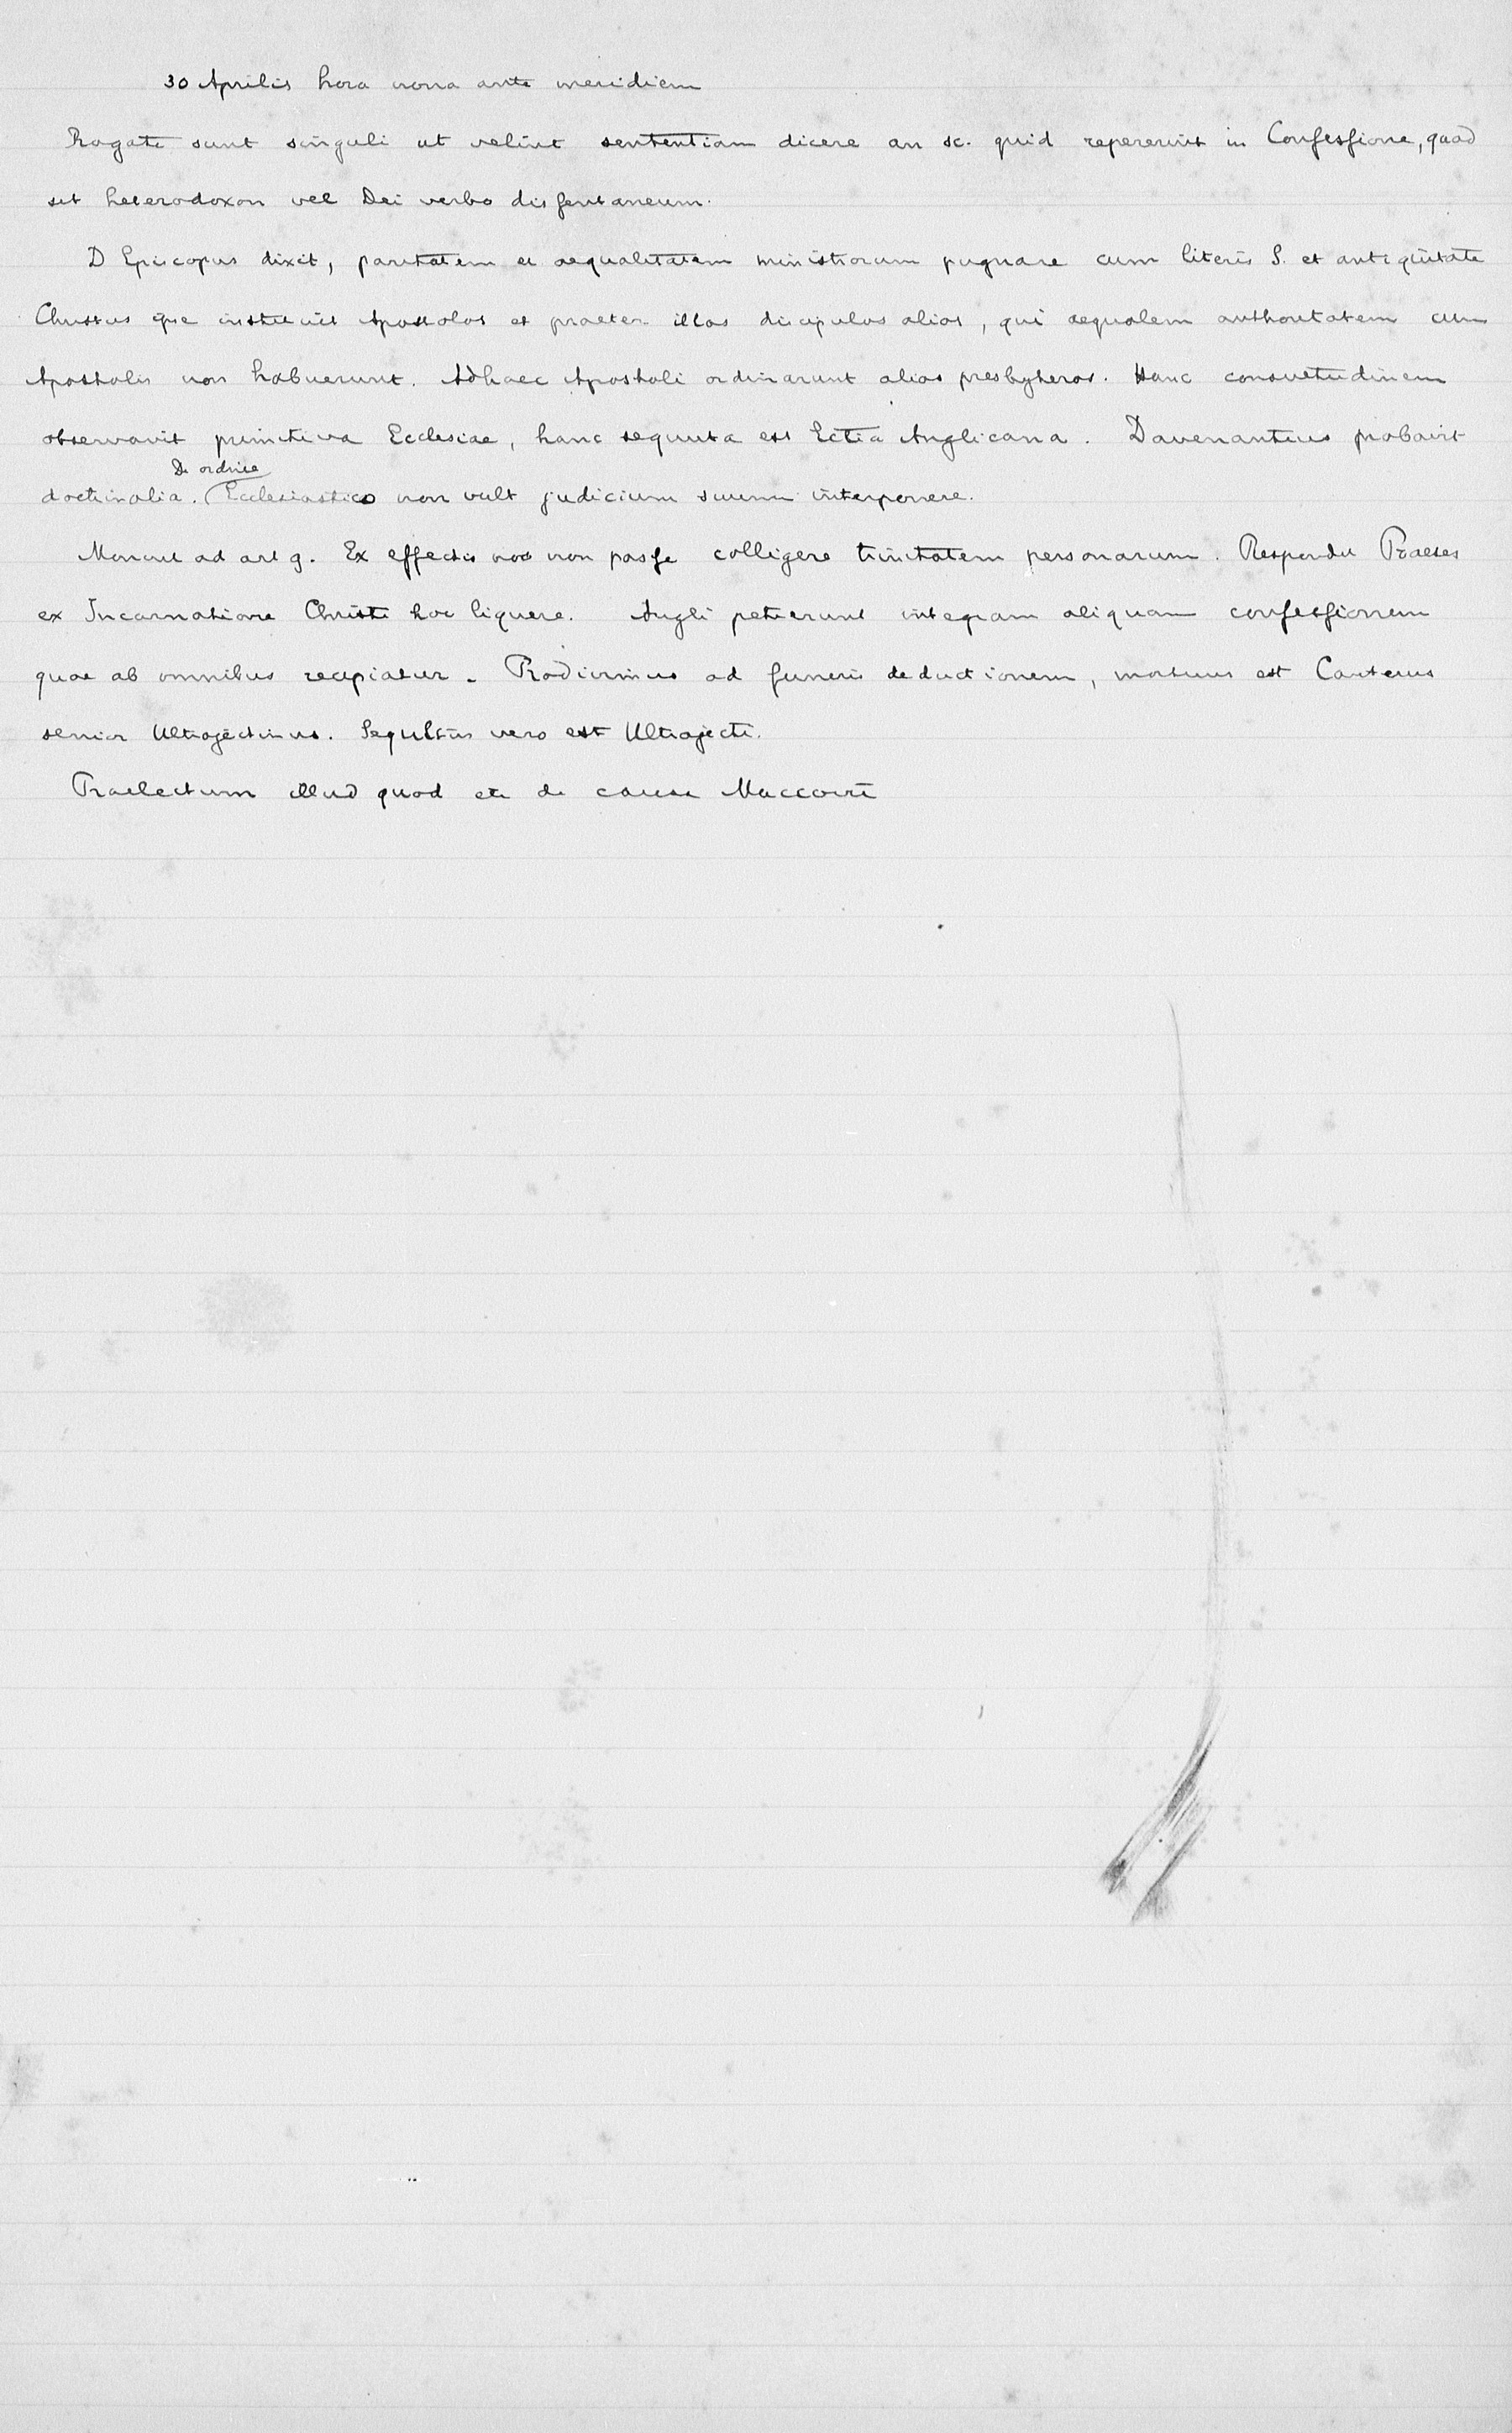 30 Aprilis hora nona ante meridiem
Rogati sunt singuli ut velint sententiam dicere an sc. quid repererint in Confessione, quod
sit heterodoxon vel Dei verbo dissentaneum.
D Episcopus dixit, paritatem et aequalitatem ministrorum pugnare cum literis S. et antiqūitate
Christus ipse instituit Apostolos et praeter illos discipulos alios, qui aequalem authoritatem cum
Apostolis non habuerunt. Adhaec Apostoli ordinarunt alios presbyteros. Hanc consuetudinem
observavit primitiva Ecclesiae, hanc sequuta est Ectia Anglicana. Davenantius probavit
De ordine
doctrinalia. Ecclesiastico non vult judicium suum interponere.
Monuit ad art 9. Ex effectis nos non posse colligere trinitatem personarum. Respondit Praeses
ex Incarnatione Christi hoc liquere. Angli petierunt integram aliquam confessionem
quae ab omnibus recipiatur. Prodivimus ad funeris deductionem, mortuus est Canterus
senior Ultrajectinus. Sepultus vero est Ultrajecti.
Praelectum illud quod etc de causa Maccovii